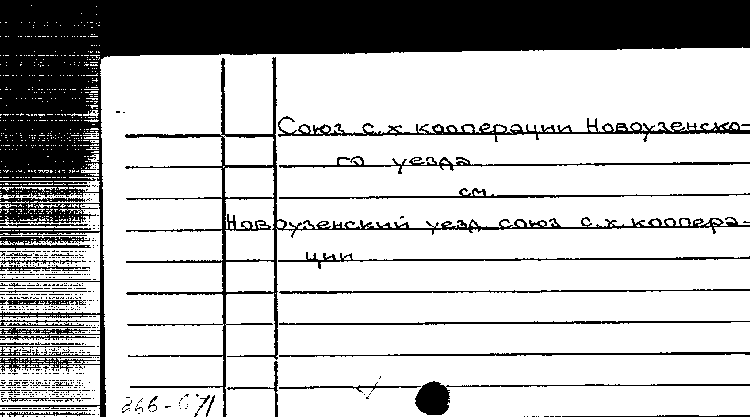 Союз с.х кооперации Новоузенско-
го уезда
см.
Новоузенский уезд союз с.х коопера-
ции